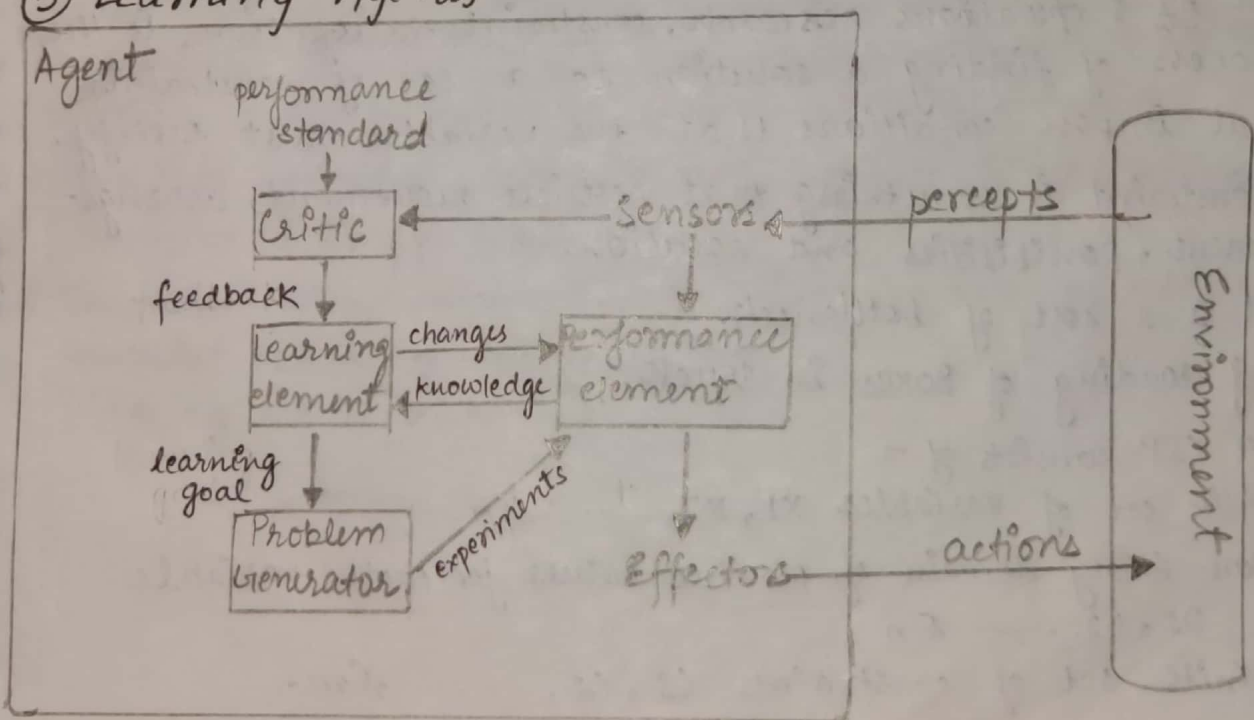 Learning
Agent
performance
standard
Critic
sensors
percepts
feedback
learning
element
changes
knowledge
performance
element
Environment
learning
goal
Problem
Generator
experiments
Effectors
actions